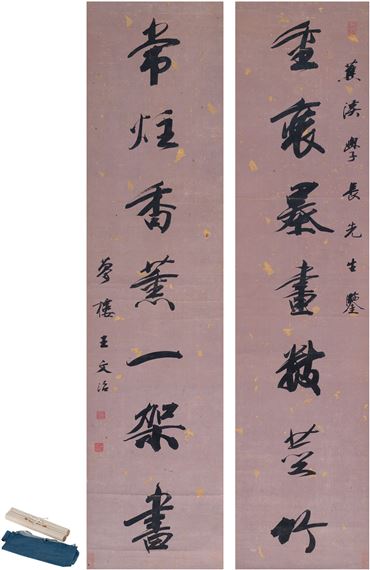 蕉溪學長先生鑒
重裹墨畫數莖竹
常炷香薰一架書
夢樓王文治